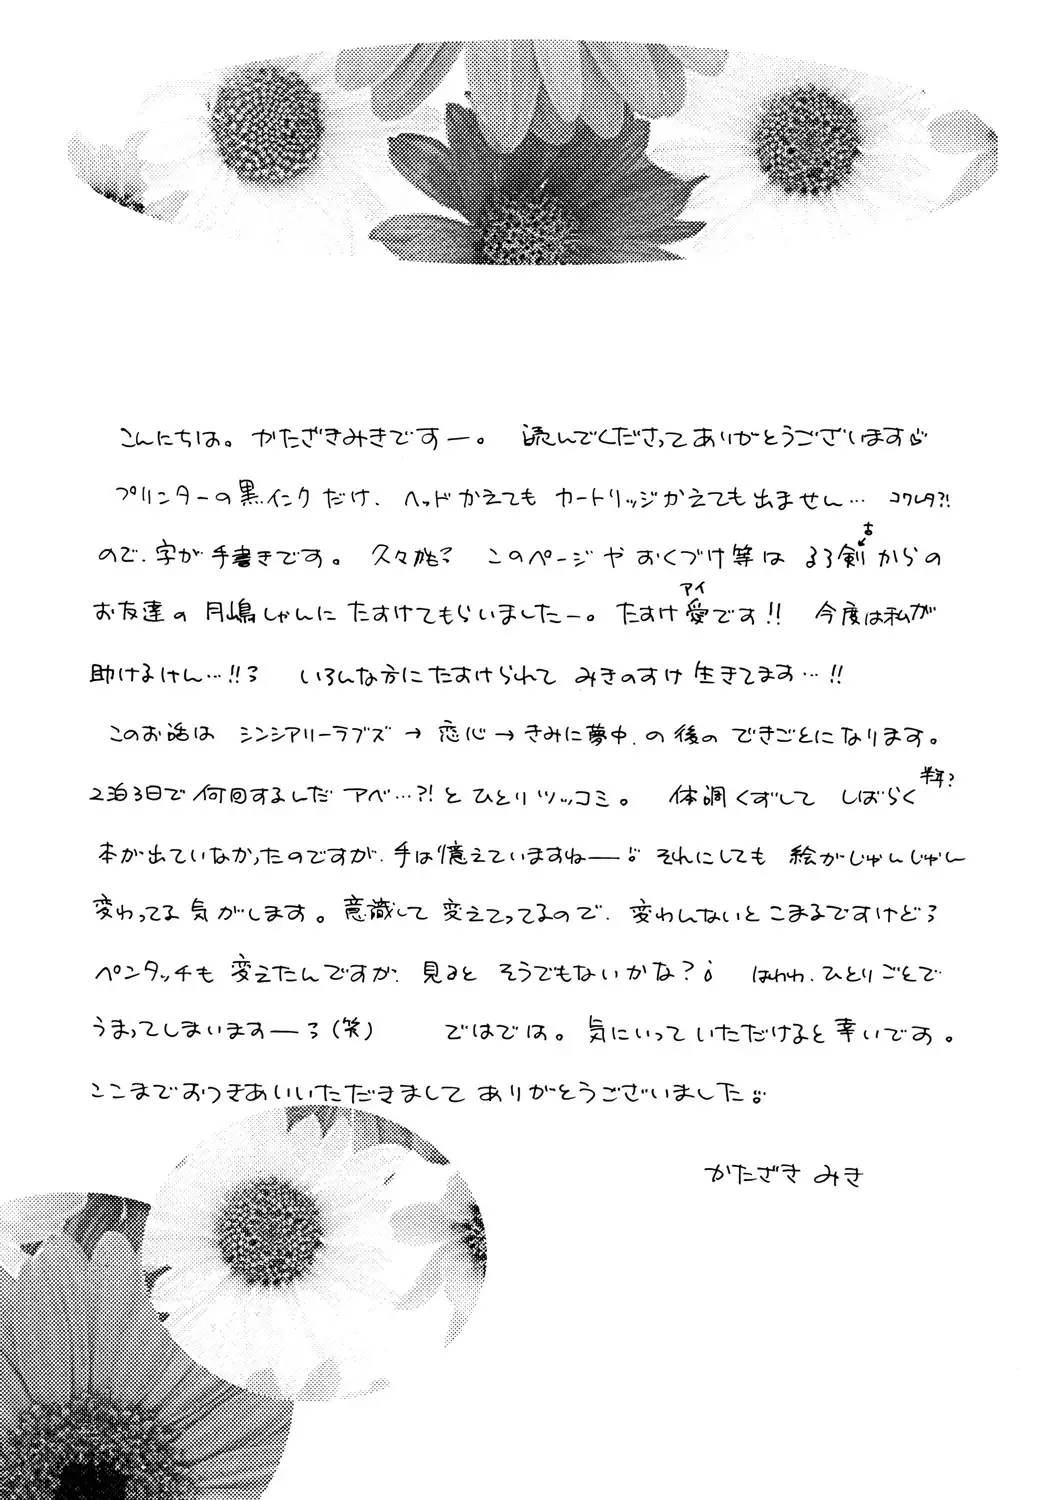 こんにちは。かたざきみきですー。 読んでくださってありがとうございます
プリンターの黒インクだけ、ヘッドかえてもカートリッジかえても出ません… コワレタ?!
ので、字が手書きです。久々かも? このページやおくづけ等は るろ剣からの
古
お友達の月嶋しゃんにたすけてもらいましたー。たすけ愛です!! 今度は私が
アイ
助けるけん…!! いろんな方にたすけられて みきのすけ生きてます…!!
このお話は シンシアリーラブズ→恋心→きみに夢中 の後の できごとになります。
2泊3日で何回するしだ アベ…?!とひとりツッコミ。 体調くずして しばらく
半年?
本が出ていなかったのですが、手は憶えていますねー それにしても 絵がじゃんじゃん
変わってる気がします。意識して変えてってるので、変わんないとこまるですけど
ペンタッチも変えたんですが、見ると そうでもないかな? はわわ、ひとりごとで
うまってしまいますー(笑) ではでは。気にいっていただけると幸いです。
ここまでおつきあいいただきましてありがとうございました
かたざき みき